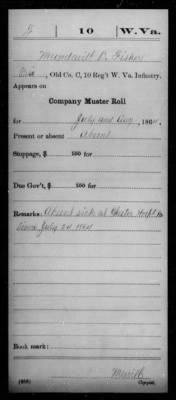 F 10 W. Va.
P. Fisher
Pvt, Old Co. C, 10 Reg't W. Va. Infantry.
Appears on
Company Muster Roll
for July and Aug, 1864.
Present or absent Absent
Stoppage, $ 100 for
Due Gov't, $ 100 for
Remarks: Absent sick at Hosp'l
Since July 24 1864
Book mark:
Merrill
(858) Copyist.